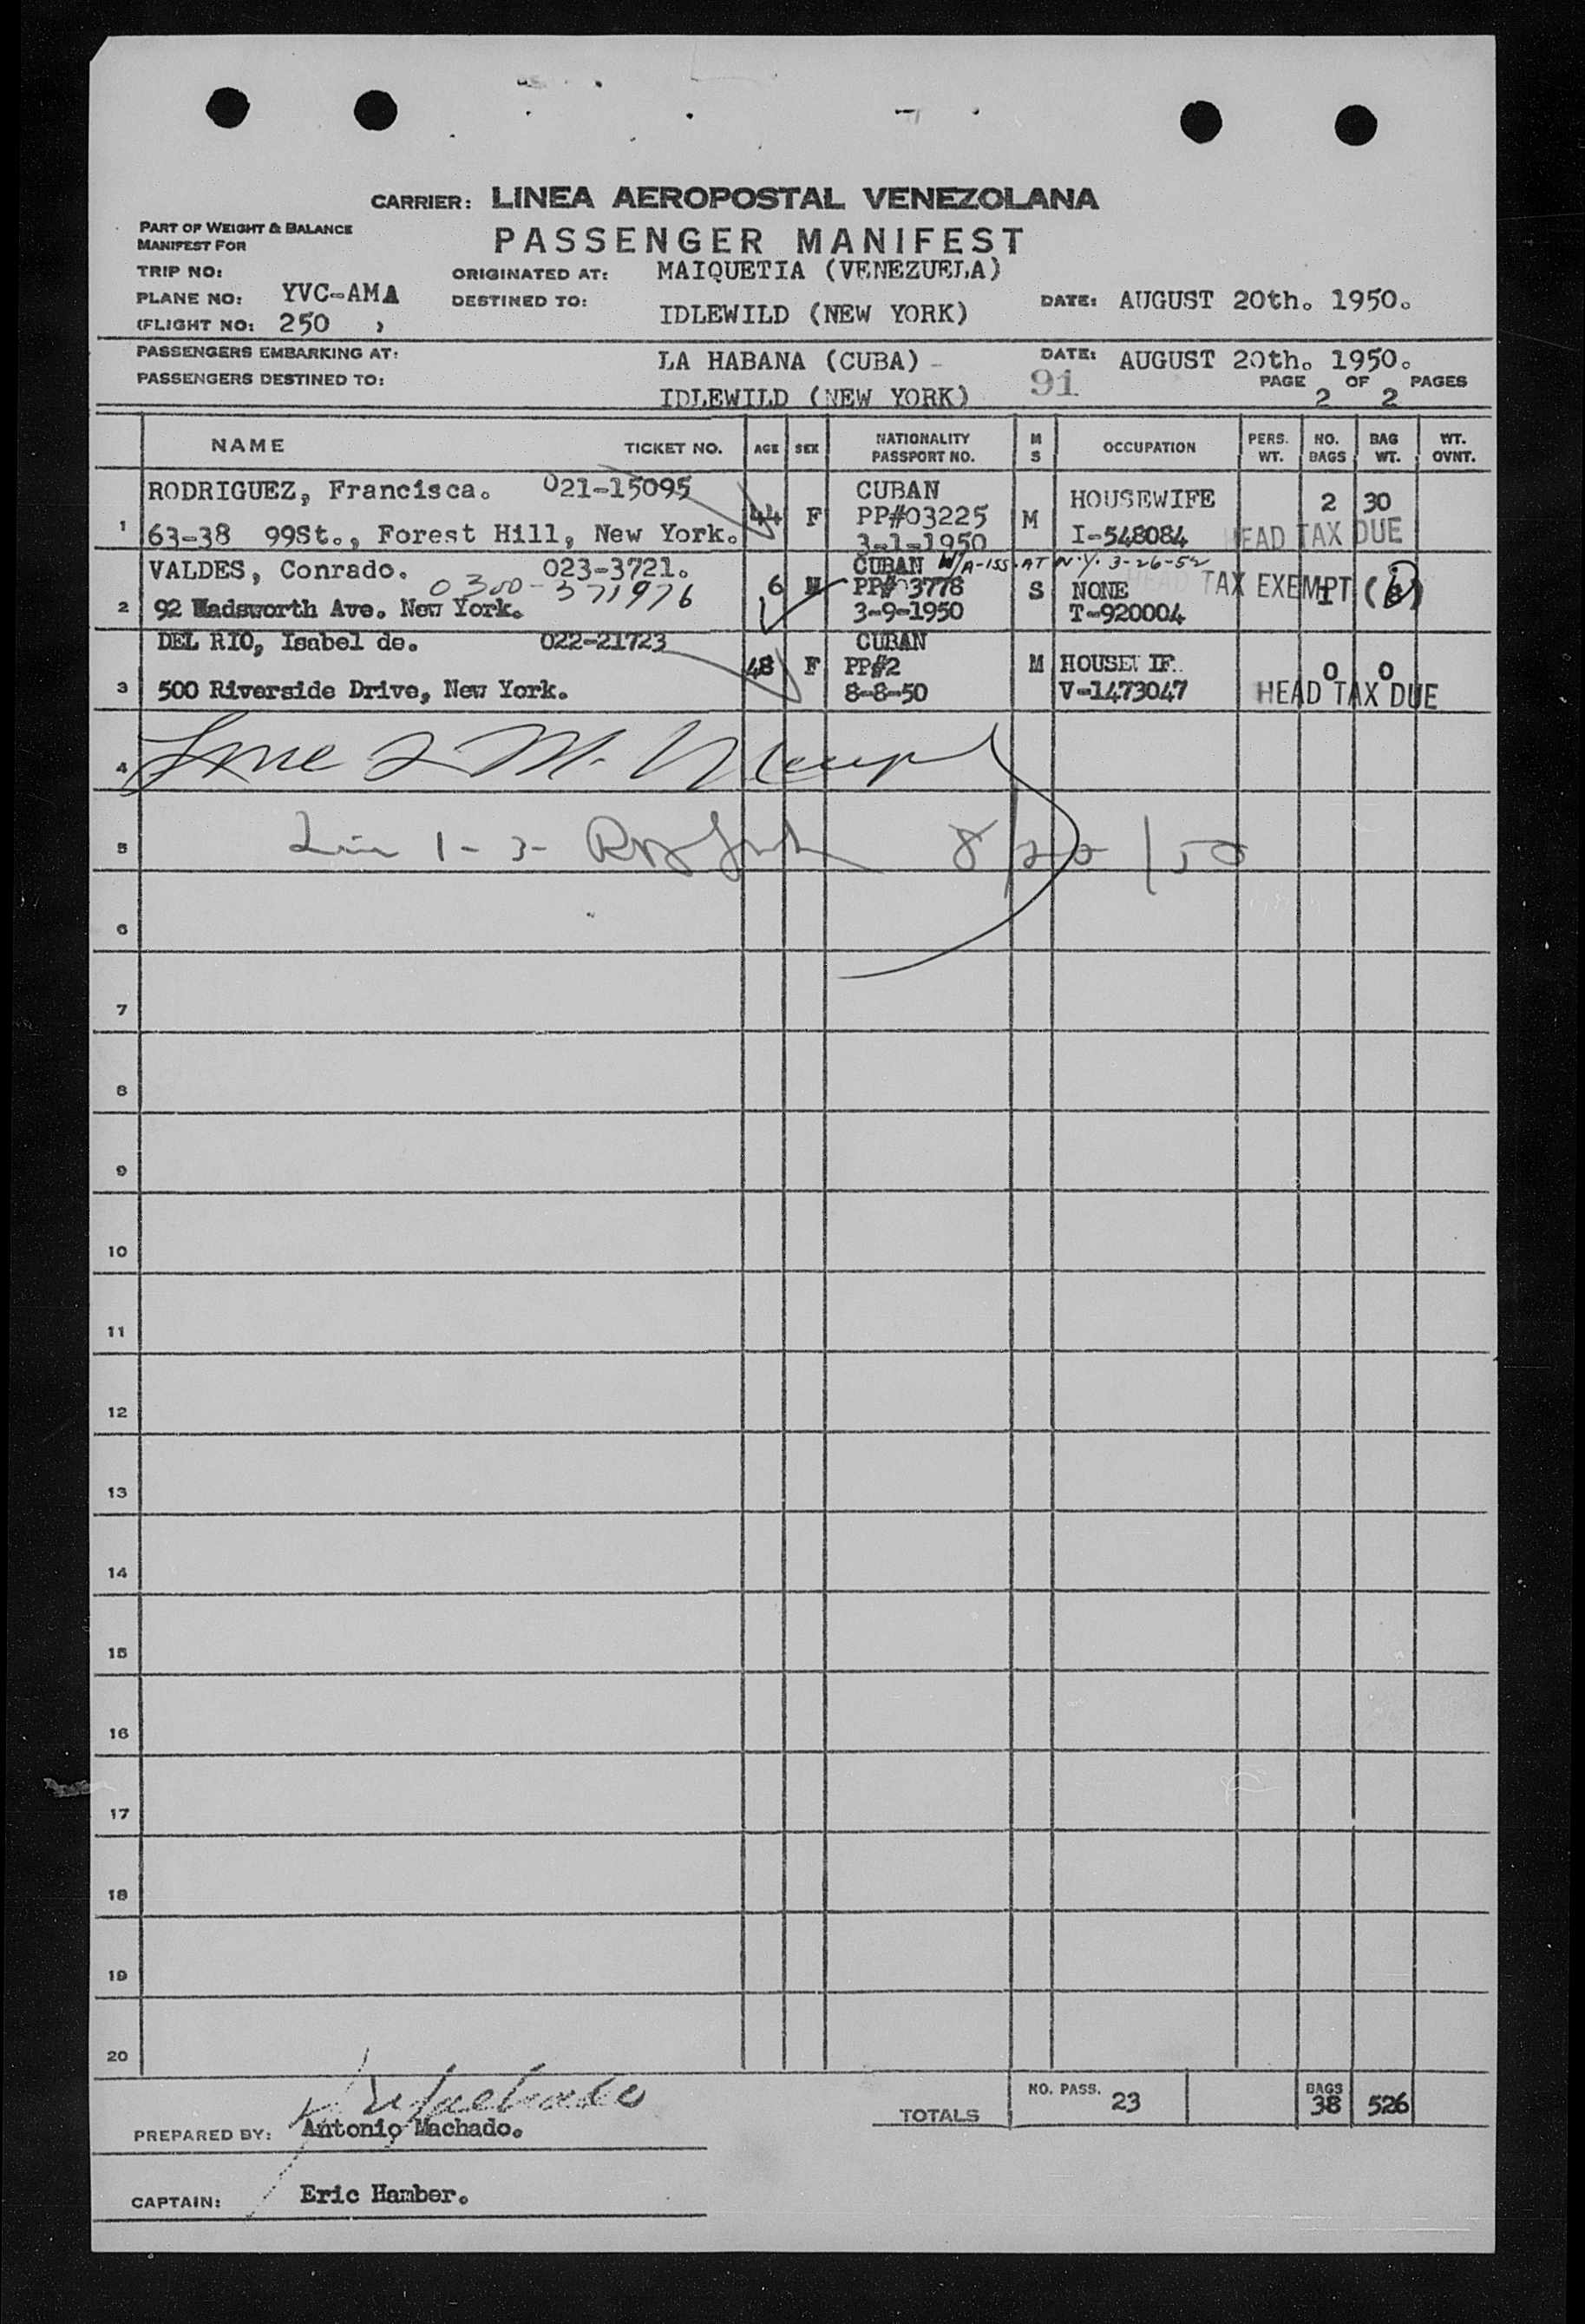 CARRIER: LINEA AEROPOSTAL VENEZOLANA
PART OF WEIGHT & BALANCE
MANIFEST FOR
PASSENGER MANIFEST
TRIP NO:
ORIGINATED AT: MAIQUETIA (VENEZUELA)
PLANE NO: YVC-AMA
DESTINED TO: IDLEWILD (NEW YORK)
DATE: AUGUST 20th. 1950.
(FLIGHT NO: 250 )
PASSENGERS EMBARKING AT: LA HABANA (CUBA) -
DATE: AUGUST 20th. 1950.
PASSENGERS DESTINED TO: IDLEWILD (NEW YORK)
91
PAGE 2 OF 2 PAGES
NAME TICKET NO. AGE SEX NATIONALITY PASSPORT NO. M S OCCUPATION PERS. WT. NO. BAGS BAG WT. WT. OVNT.
RODRIGUEZ, Francisca. 021-15095 CUBAN HOUSEWIFE 2 30
1 44 F PP#03225 M
63-38 99St., Forest Hill, New York. 3-1-1950 I-548084 HEAD TAX DUE
VALDES, Conrado. 023-3721. CUBAN W/A-155-AT N.Y. 3-26-52
0300-371976 6 M PP#03778 S NONE TAX EXEMPT
2 92 Wadsworth Ave. New York. 3-9-1950 T-920004
DEL RIO, Isabel de. 022-21723 CUBAN
48 F PP#2 M HOUSEWIF 0 0
3 500 Riverside Drive, New York. 8-8-50 V-1473047 HEAD TAX DUE
4
5 1-3- 8/22/50
6
7
8
9
10
11
12
13
14
15
16
17
18
19
20
TOTALS NO. PASS. 23 BAGS 38 526
PREPARED BY: Antonio Machado.
CAPTAIN: Eric Hamber.